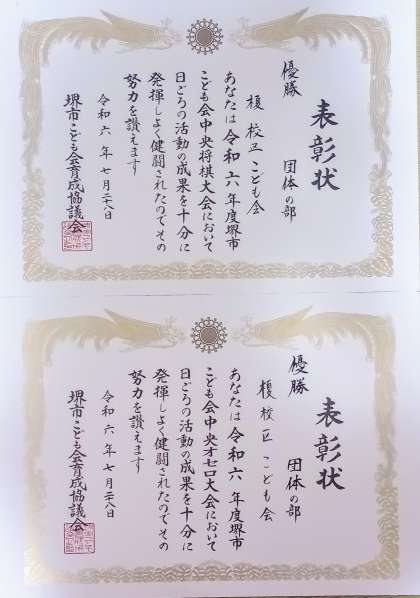 表彰状
優勝 団体の部
榎校区こども会
あなたは令和六年度堺市
こども会中央将棋大会において
日ごろの活動の成果を十分に
発揮しよく健闘されたのでその
努力を讃えます
令和六年七月二八日
堺市こども会育成協議会
表彰状
優勝 団体の部
榎校区こども会
あなたは令和六年度堺市
こども会中央オセロ大会において
日ごろの活動の成果を十分に
発揮しよく健闘されたのでその
努力を讃えます
令和六年七月二八日
堺市こども会育成協議会